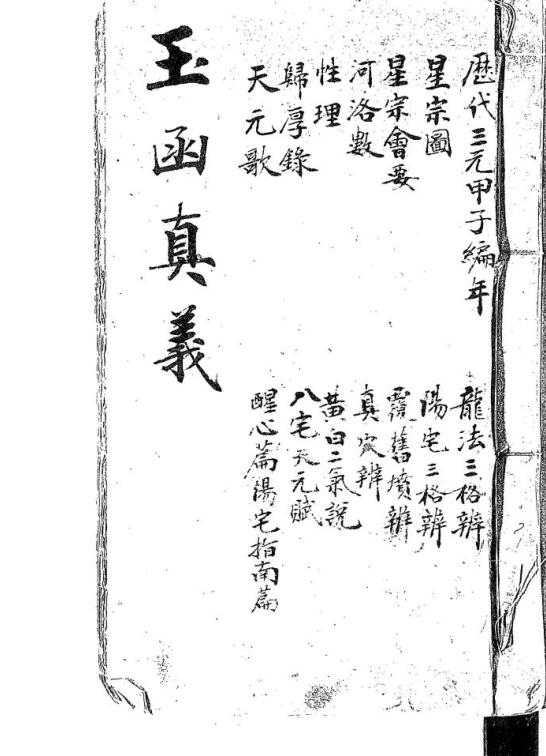 歷代三元甲子編年
星宗圖
星宗會要
河洛數
性理
歸厚錄
天元歌
龍法三格辨
陽宅三格辨
覆舊墳辨
真穴辨
黃白二氣說
八宅天元賦
醒心篇陽宅指南篇
玉函真義